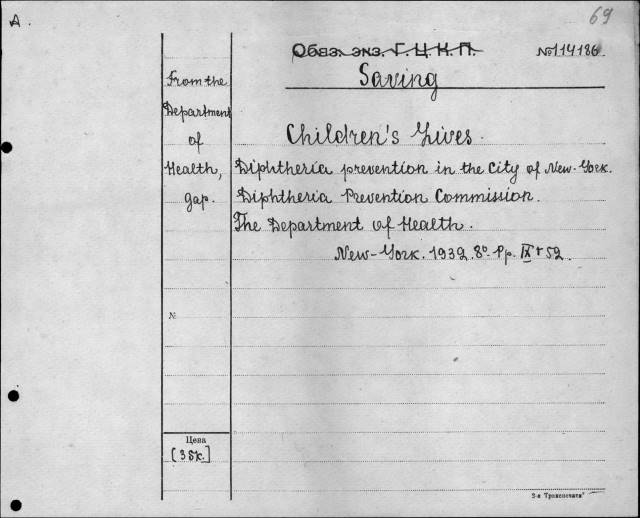 A.
69
Обяз. экз. Г.Ц.К.П.
№114186.
Saving
From the
Department
of
Health,
gар.
Children's Lives.
Diphtheria prevention in the City of New-York.
Diphtheria Prevention Commission.
The Department of Health.
New-York. 1932. 8º. Pp. IX + 52.
№
Цена
[35к.]
2-я Транспечати"